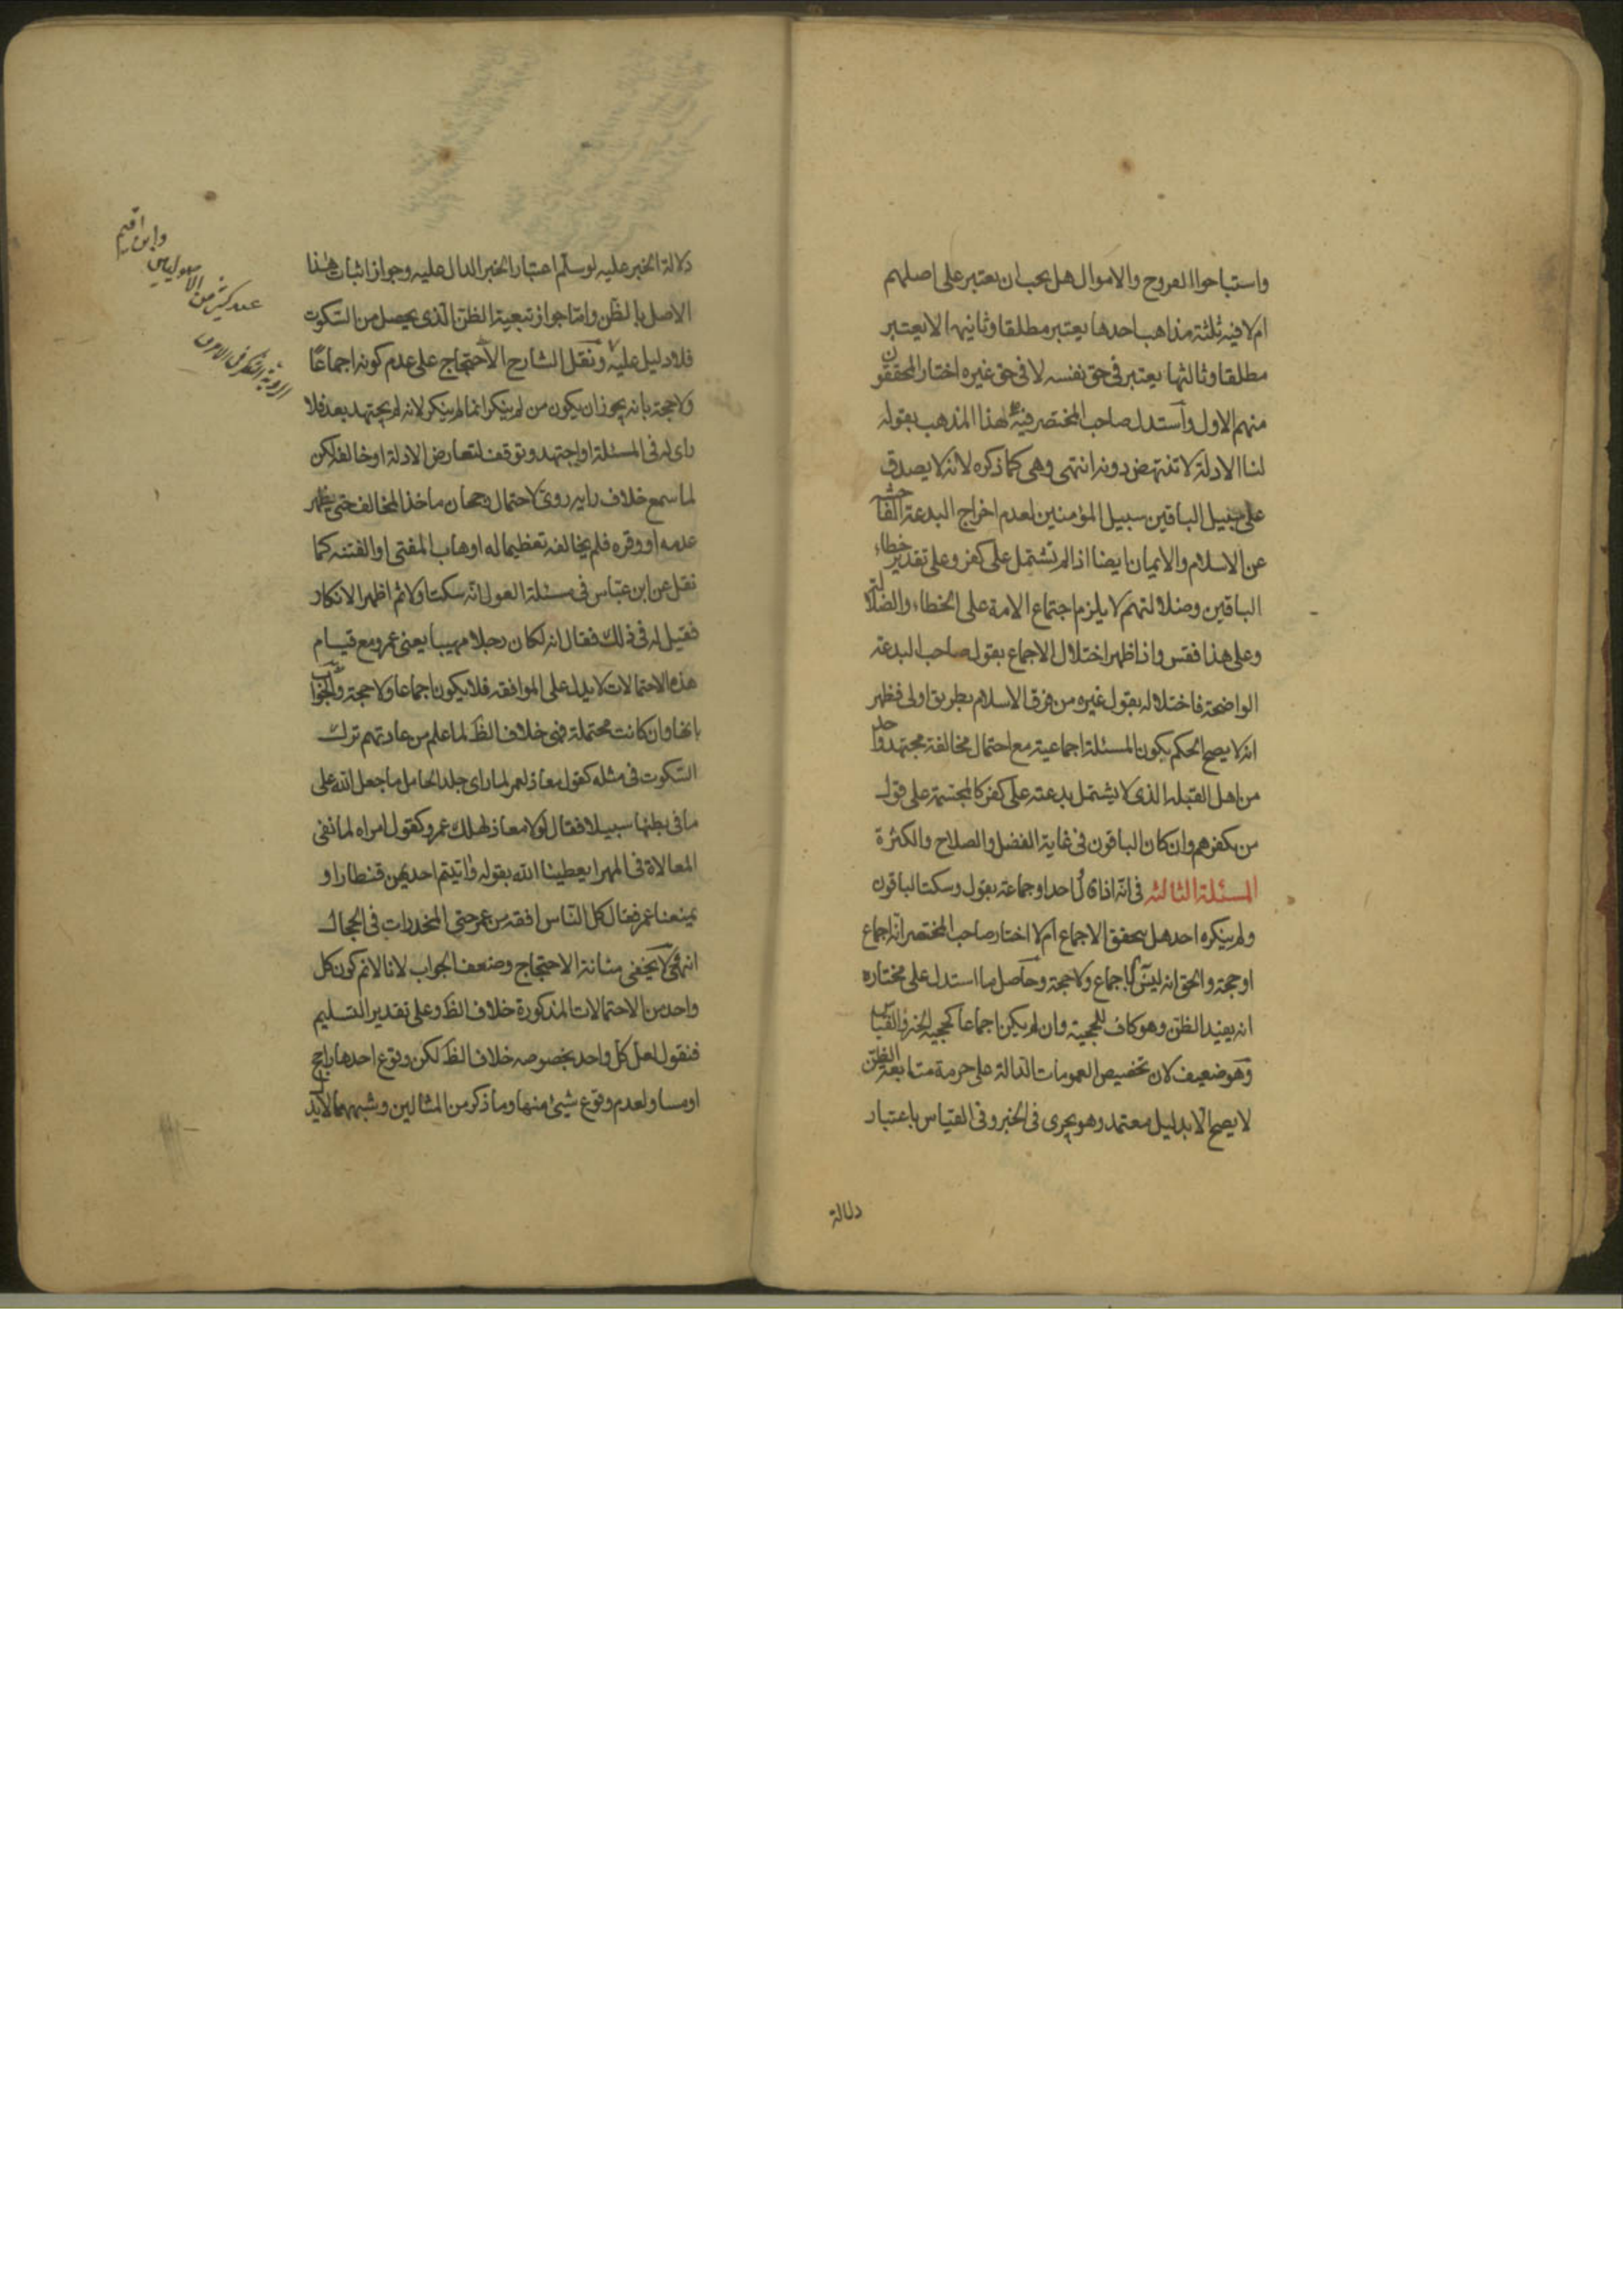 واستباحوا الفروج والاموال هل يجب ان يعتبر على اصلهم
ام لا فيه ثلثة مذاهب احدها يعتبر مطلقا وثانيها لا يعتبر
مطلقا وثالثها يعتبر في حق نفسه لا في حق غيره اختار المحققون
منهم الاول واستدل صاحب المختصر فيه لهذا المذهب بقوله
لنا الادلة لا تنتهض دونه انتهى وهي كما ذكره لانه لا يصدق
على سبيل الباقين سبيل المؤمنين لعدم اخراج البدعة الفاحشة
عن الاسلام والايمان ايضا اذا لم تشتمل على كفر وعلى تقدير خطاء
الباقين وضلالتهم لا يلزم اجتماع الامة على الخطاء والضلالة
وعلى هذا فقس واذا ظهر اختلال الاجماع بقول صاحب البدعة
الواضحة فاختلاله بقول غيره من فرق الاسلام بطريق اولى فظهر
انه لا يصح الحكم بكون المسئلة اجماعية مع احتمال مخالفة مجتهد واحد
من اهل القبلة الذي لا يشتمل بدعته على كفر كالمجسمة على قول
من يكفرهم وان كان الباقون في غاية الفضل والصلاح والكثرة
المسئلة الثالثه في انه اذا قال احد او جماعة بقول وسكت الباقون
ولم ينكره احد هل يتحقق الاجماع ام لا اختار صاحب المختصر انه اجماع
او حجة والحق انه ليس باجماع ولا حجة وحاصل ما استدل على مختاره
انه يفيد الظن وهو كاف للحجية وان لم يكن اجماعا كحجية الخبر والقياس
وهو ضعيف لان تخصيص العمومات الدالة على حرمة متابعة الظن
لا يصح الا بدليل معتمد وهو يجري في الخبر وفي القياس باعتبار
دلالة
دلالة الخبر عليه لو سلم اعتبار الخبر الدال عليه وجواز اثبات هذا
الاصل بالظن واما جواز تبعية الظن الذي يحصل من السكوت
فلا دليل عليه ونقل الشارح الاحتجاج على عدم كونه اجماعًا
ولا حجة بانه يجوز ان يكون من لم ينكر انما لم ينكر لانه لم يجتهد بعد فلا
راى له في المسئلة او اجتهد وتوقف لتعارض الادلة او خالفه لكن
لما سمع خلاف رايه روى لاحتمال رجحان ماخذ المخالف حتى يظهر
عدمه او وقره فلم يخالفه تعظيما له او هاب المفتي او الفتنه كما
نقل عن ابن عباس في مسئلة العول انه سكت اولا ثم اظهر الانكار
فقيل له في ذلك فقال انه لكان رجلا مهيبا يعني عمر ومع قيام
هذه الاحتمالات لا يدل على الموافقه فلا يكون اجماعا ولا حجة والجواب
بانها وان كانت محتملة فهي خلاف الظ لما علم من عادتهم ترك
السكوت في مثله كقول معاذ لعمر لما راى جلد الحامل ما جعل الله على
ما في بطنها سبيلا فقال لولا معاذ لهلك عمر وكقول امراه لما نفى
المغالاة في المهر ايعطينا الله بقوله واتيتم احديهن قنطارا و
يمنعنا عمر فقال كل الناس افقه من عمر حتى المخدرات في الحجال
انتهى لا يخفى متانة الاحتجاج وضعف الجواب لانا لا نم كون كل
واحد من الاحتمالات المذكورة خلاف الظ وعلى تقدير التسليم
فنقول لعل كل واحد بخصوصه خلاف الظ لكن وقوع احدها راجح
او مساو لعدم وقوع شيئ منها وما ذكر من المثالين وشبههما لا يدل
عند كثير من الاصوليين